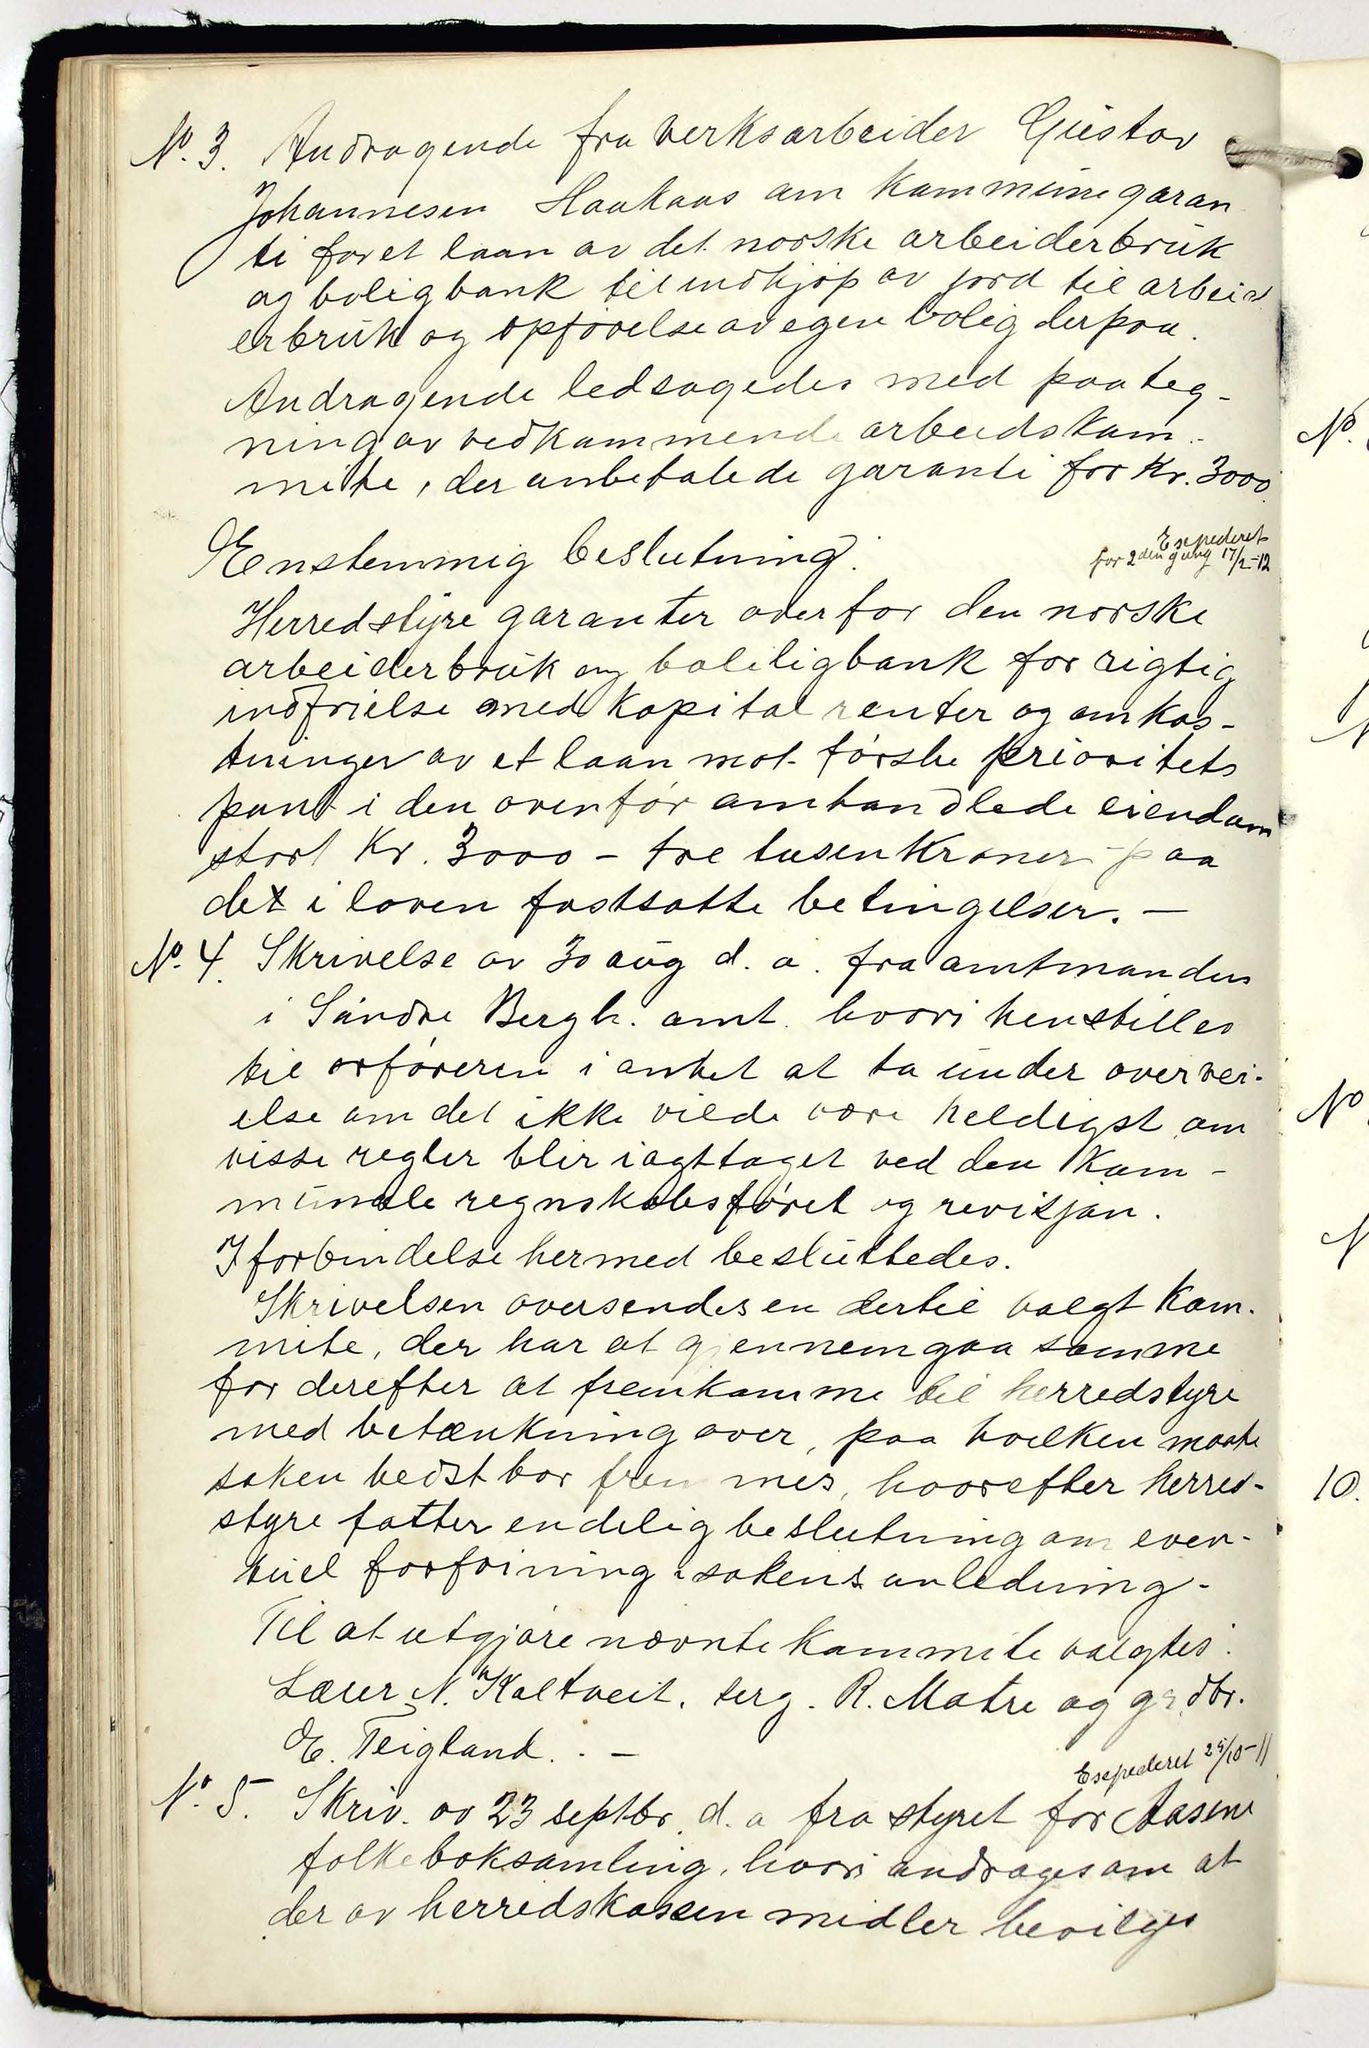 No. 3. Andragende fra verksarbeider Gustav
Johannesen Haakaas om kommunegaran
ti for et laan av det norske arbeiderbruk
og boligbank til indkjøp av jord til arbeid
erbruk og opførelse av egen bolig derpaa.
Andragende ledsagedes med paateg-
ning av vedkommende arbeidskom-
mite, der anbefalede garanti for Kr. 3000.
Exspederet
for 2den gang 17/2-12
Enstemmig beslutning:
Herredstyre garanter overfor den norske
arbeiderbruk og boliligbank for rigtig
indfrielse med kapital renter og omkos-
tninger av et laan mot første prioritets
pant i den ovenfor omhandlede eiendom
stort Kr. 3000 - tre tusen kroner - paa
det i loven fastsatte betingelser. -
No. 4. Skrivelse av 30 aug d. a. fra amtmanden
i Søndre Bergh. amt. hvori henstilles
til orføreren i amtet at ta under overvei-
else om det ikke vilde være heldigst om
visse regler blir iagttaget ved den kom-
munale regnskabsføret og revisjon.
I forbindelse hermed besluttedes.
Skrivelsen oversendes en dertil valgt kom-
mite, der har at gjennemgaa samme
for derefter at fremkomme til herredstyre
med betænkning over, paa hvilken maate
saken bedst bør fremmes, hvorefter herred-
styre fatter endelig beslutning om even-
tuel forføining i sakens anledning.
Til at utgjøre nævnte kommite valgtes:
Lærer N. Kaltveit, serg. R. Matre og grdbr.
E. Teigland. . -
Exspederet 25/10-11
No. 5. Skriv. av 23 septbr. d. a fra styret for Aasene
folkeboksamling, hvori andrages om at
der av herredskassen midler bevilges
No.
No
N
10.